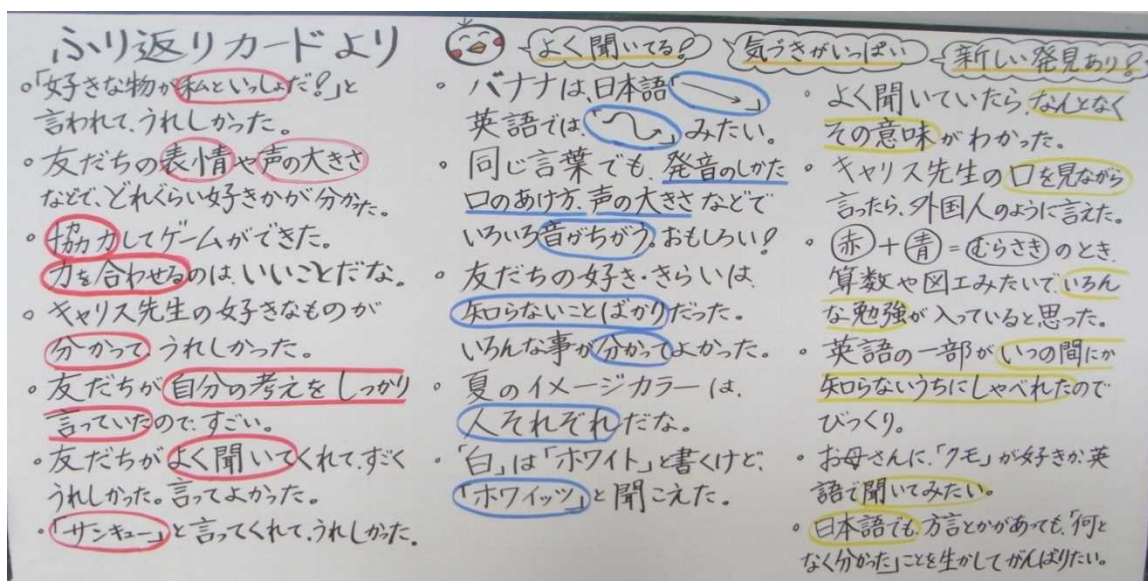 ふり返りカードより
よく聞いてる!
気づきがいっぱい
新しい発見あり!
。「好きな物が私といっしょだ!」と
言われて、うれしかった。
。友だちの表情や声の大きさ
などで、どれくらい好きかが分かった。
。協力してゲームができた。
力を合わせるのは、いいことだな。
。キャリス先生の好きなものが
分かって、うれしかった。
。友だちが自分の考えをしっかり
言っていたので、すごい。
。友だちがよく聞いてくれて、すごく
うれしかった。言ってよかった。
。「サンキュー」と言ってくれて、うれしかった。
。バナナは、日本語「→」
英語では、「〜」みたい。
。同じ言葉でも、発音のしかた
口のあけ方、声の大きさなどで
いろいろ音がちがう。おもしろい!
。友だちの好き・きらいは、
知らないことばかりだった。
いろんな事が分かってよかった。
。夏のイメージカラーは、
人それぞれだな。
。「白」は「ホワイト」と書くけど、
「ホワイッツ」と聞こえた。
。よく聞いていたら、なんとなく
その意味がわかった。
。キャリス先生の口を見ながら
言ったら、外国人のように言えた。
。赤+青=むらさきのとき、
算数や図工みたいで、いろん
な勉強が入っていると思った。
。英語の一部がいつの間にか
知らないうちにしゃべれたので
びっくり。
。お母さんに、「クモ」が好きか、英
語で聞いてみたい。
。日本語でも、方言とかがあっても、「何と
なく分かった」ことを生かしてがんばりたい。